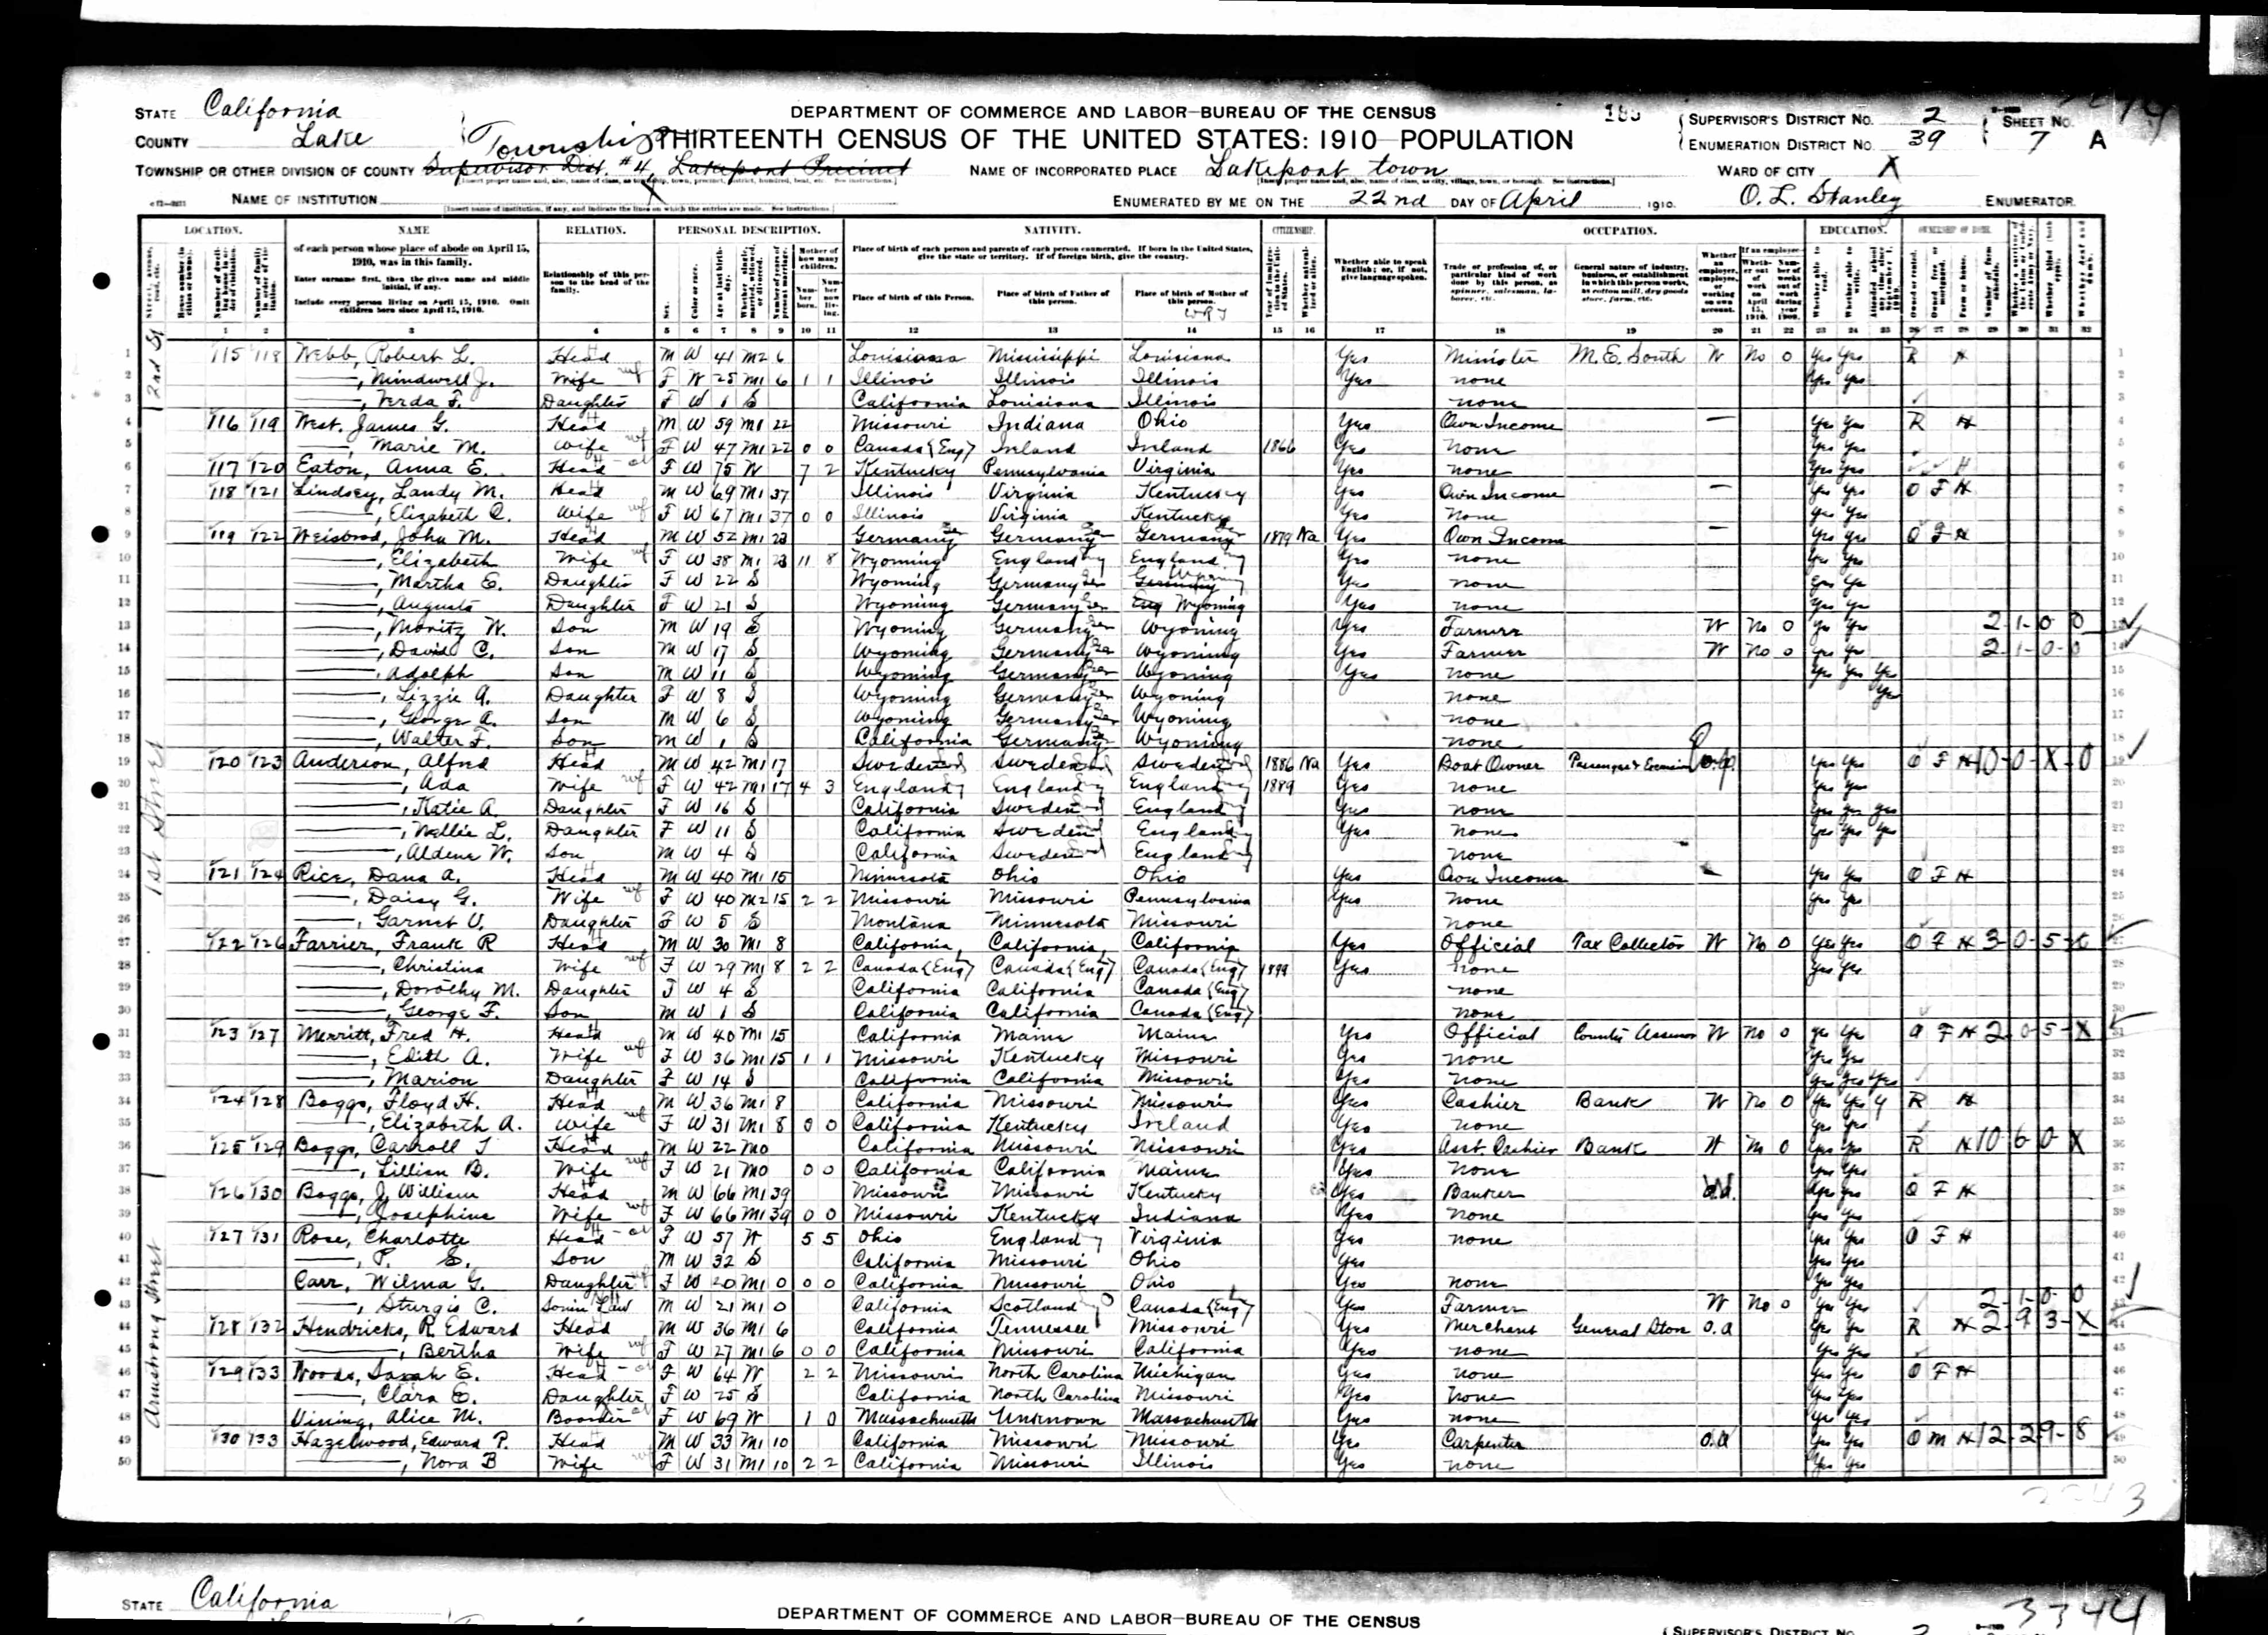 STATE California
COUNTY Lake
DEPARTMENT OF COMMERCE AND LABOR–BUREAU OF THE CENSUS
THIRTEENTH CENSUS OF THE UNITED STATES: 1910 POPULATION
SUPERVISOR'S DISTRICT No. 2
ENUMERATION DISTRICT No. 39
SHEET No. 7 A
Township
TOWNSHIP OR OTHER DIVISION OF COUNTY Supervisor Dist. #4, Lakeport Precinct
NAME OF INCORPORATED PLACE Lakeport town
WARD OF CITY X
NAME OF INSTITUTION X
ENUMERATED BY ME ON THE 22nd DAY OF April 1910.
O. L. Stanley ENUMERATOR
LOCATION. NAME RELATION. PERSONAL DESCRIPTION. NATIVITY. CITIZENSHIP. OCCUPATION. EDUCATION.
of each person whose place of abode on April 15, 1910, was in this family.
Enter surname first, then the given name and middle initial, if any.
Include every person living on April 15, 1910. Omit children born since April 15, 1910.
Relationship of this person to the head of the family.
Place of birth of each person and parents of each person enumerated. If born in the United States, give the state or territory. If of foreign birth, give the country.
Place of birth of this Person. Place of birth of Father of this person. Place of birth of Mother of this person.
Whether able to speak English; or, if not, give language spoken.
1 2 3 4 5 6 7 8 9 10 11 12 13 14 15 16 17 18 19 20 21 22 23 24 25 26 27 28 29 30 31 32
2nd St
1 115 118 Webb, Robert L. Head M W 41 M2 6 Louisiana Mississippi Louisiana Yes Minister M.E. South W No 0 Yes Yes R H
2 ——, Mindwell J. Wife F W 25 M1 6 1 1 Illinois Illinois Illinois Yes none Yes Yes
3 ——, Verda F. Daughter F W 1 S California Louisiana Illinois none
4 116 119 West, James G. Head M W 59 M1 22 Missouri Indiana Ohio Yes Own Income Yes Yes R H
5 ——, Marie M. Wife F W 47 M1 22 0 0 Canada (Eng) Ireland Ireland 1866 Yes None Yes Yes
6 117 120 Eaton, Anna E. Head F W 75 W 7 2 Kentucky Pennsylvania Virginia Yes none Yes Yes H
7 118 121 Lindsey, Landy M. Head M W 69 M1 37 Illinois Virginia Kentucky Yes Own Income Yes Yes O F H
8 ——, Elizabeth C. Wife F W 67 M1 37 0 0 Illinois Virginia Kentucky Yes None Yes Yes
9 119 122 Weisbrod, John M. Head M W 52 M1 23 Germany Germany Germany 1879 Na Yes Own Income Yes Yes O F H
10 ——, Elizabeth Wife F W 38 M1 23 11 8 Wyoming England England Yes none Yes Yes
11 ——, Martha E. Daughter F W 22 S Wyoming Germany Germany Wyoming Yes none Yes Yes
12 ——, Augusta Daughter F W 21 S Wyoming Germany Eng Wyoming Yes none Yes Yes
13 ——, Moritz W. Son M W 19 S Wyoming Germany Wyoming Yes Farmer W No 0 Yes Yes 2-1-0-0
14 ——, David C. Son M W 17 S Wyoming Germany Wyoming Yes Farmer W No 0 Yes Yes 2-1-0-0
15 ——, Adolph Son M W 11 S Wyoming Germany Wyoming Yes none Yes Yes Yes
16 ——, Lizzie A. Daughter F W 8 S Wyoming Germany Wyoming none Yes
17 ——, George A. Son M W 6 S Wyoming Germany Wyoming none
18 ——, Walter F. Son M W 1 S California Germany Wyoming none
1st Street
19 120 123 Anderson, Alfred Head M W 42 M1 17 Sweden Sweden Sweden 1886 Na Yes Boat Owner Passenger & Excursion Yes Yes O F H 10-0-X-0
20 ——, Ada Wife F W 42 M1 17 4 3 England England England 1889 Yes none Yes Yes
21 ——, Katie A. Daughter F W 16 S California Sweden England Yes none Yes Yes Yes
22 ——, Nellie L. Daughter F W 11 S California Sweden England Yes None Yes Yes Yes
23 ——, Aldene W. Son M W 4 S California Sweden England None
24 121 124 Rice, Dana A. Head M W 40 M1 15 Minnesota Ohio Ohio Yes Own Income Yes Yes O F H
25 ——, Daisy G. Wife F W 40 M2 15 2 2 Missouri Missouri Pennsylvania Yes None Yes Yes
26 ——, Garnet V. Daughter F W 5 S Montana Minnesota Missouri None
27 122 126 Farrier, Frank R Head M W 30 M1 8 California California California Yes Official Tax Collector W No 0 Yes Yes O F H 3-0-5-X
28 ——, Christina Wife F W 29 M1 8 2 2 Canada (Eng) Canada (Eng) Canada (Eng) 1899 Yes None Yes Yes
29 ——, Dorothy M. Daughter F W 4 S California California Canada (Eng) none
30 ——, George F. Son M W 1 S California California Canada (Eng) none
31 123 127 Merritt, Fred H. Head M W 40 M1 15 California Maine Maine Yes Official County Assessor W No 0 Yes Yes O F H 2-0-5-X
32 ——, Edith A. Wife F W 36 M1 15 1 1 Missouri Kentucky Missouri Yes none Yes Yes
33 ——, Marion Daughter F W 14 S California California Missouri Yes none Yes Yes Yes
34 124 128 Boggs, Floyd H. Head M W 36 M1 8 California Missouri Missouri Yes Cashier Bank W No 0 Yes Yes R H
35 ——, Elizabeth A. Wife F W 31 M1 8 0 0 California Kentucky Ireland Yes none Yes Yes
36 125 129 Boggs, Carroll T Head M W 22 M0 California Missouri Missouri Yes Asst. Cashier Bank W No 0 Yes Yes R H 10 6 0 X
37 ——, Lillian B. Wife F W 21 M0 0 0 California California Maine Yes None Yes Yes
38 126 130 Boggs, J. William Head M W 66 M1 39 Missouri Missouri Kentucky Yes Banker Yes Yes O F H
39 ——, Josephine Wife F W 66 M1 39 0 0 Missouri Kentucky Indiana Yes None Yes Yes
Armstrong Street
40 127 131 Rose, Charlotte Head F W 57 W 5 5 Ohio England Virginia Yes none Yes Yes O F H
41 ——, P. S. Son M W 32 S California Missouri Ohio Yes Yes Yes
42 Carr, Wilma G. Daughter F W 20 M1 0 0 0 California Missouri Ohio Yes none Yes Yes
43 ——, Sturgis C. Son in Law M W 21 M1 0 California Scotland Canada (Eng) Yes Farmer W No 0 Yes Yes 2-1-0-0
44 128 132 Hendricks, R. Edward Head M W 36 M1 6 California Tennessee Missouri Yes Merchant General Store O.A Yes Yes R H 2-9-3-X
45 ——, Bertha Wife F W 27 M1 6 0 0 California Missouri California Yes none Yes Yes
46 129 133 Woods, Sarah E. Head F W 64 W 2 2 Missouri North Carolina Michigan Yes none Yes Yes O F H
47 ——, Clara E. Daughter F W 25 S California North Carolina Missouri Yes None Yes Yes
48 Vining, Alice M. Boarder F W 69 W 1 0 Massachusetts Unknown Massachusetts Yes none Yes Yes
49 130 133 Hazelwood, Edward P. Head M W 33 M1 10 California Missouri Missouri Yes Carpenter O.A Yes Yes O M H 12-2-9-8
50 ——, Nora B Wife F W 31 M1 10 2 2 California Missouri Illinois Yes none Yes Yes
STATE California
DEPARTMENT OF COMMERCE AND LABOR–BUREAU OF THE CENSUS
3344